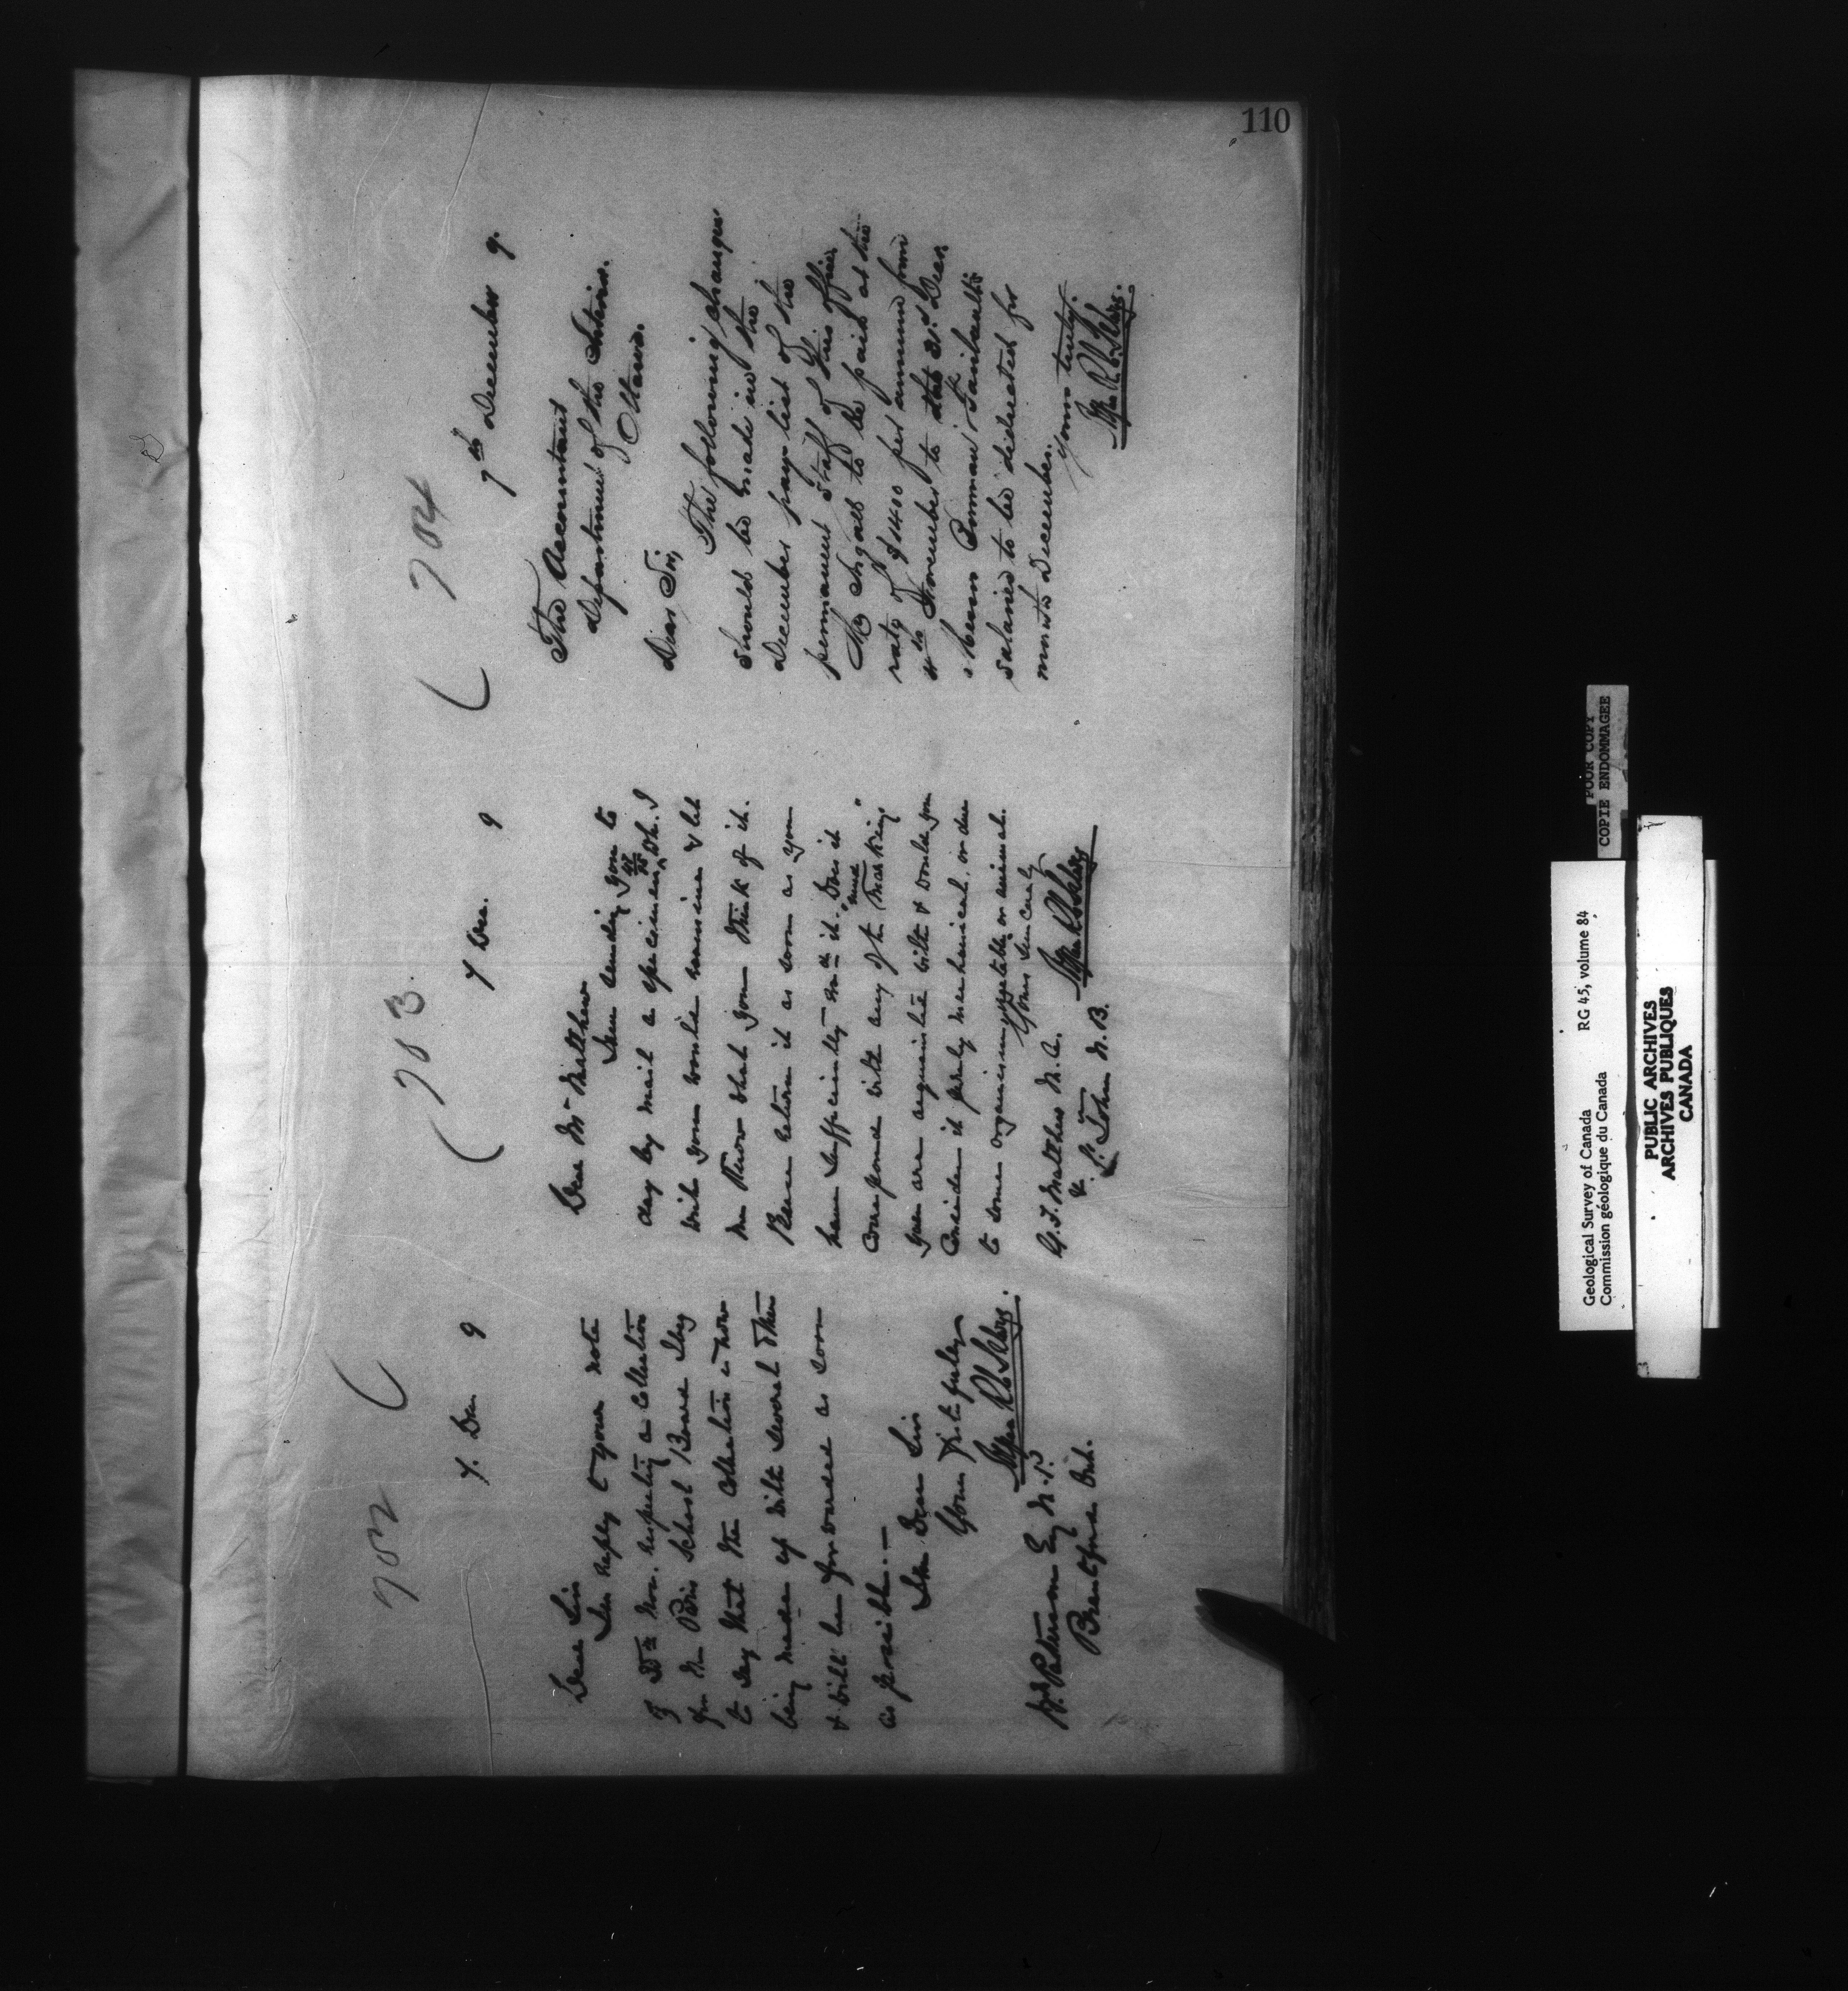 110
702
7. Dec. 9
Dear Sir
In reply to your note
of 25th Nov. respecting a collection
for the Paris School Board I beg
to say that the collection is now
being made up with several others
& will be forwarded as soon
as possible. —
I am Dear Sir
Yours faithfully
Alfred R. C. Selwyn.
W. Paterson Esq M.P.
Brantford Ont.
703.
7 Dec. 9
Dear Mr Matthew
I am sending you to
day by mail a specimen, Oh. I
wish you would examine & let
me know what you think of it.
Please return it as soon as you
have sufficiently it. Does it
correspond with any of the "mud markings"
you are acquainted with & would you
consider it purely mechanical or due
to some organism vegetable or animal.
Yours sincerely
Alfred R. C. Selwyn
G. F. Matthew M.A.
&
St. John N.B.
704
7th December 9.
The Accountant
Department of the Interior.
Ottawa.
Dear Sir,
The following changes
should be made in the
December pay-list of the
permanent staff of this office.
Mr Ingall to be paid at the
rate of $1400 per annum from
November to the 31st Dec.
Messrs Bowman & Faribault's
salaries to be deducted for
month December.
Yours truly.
Alfred R. C. Selwyn.
POOR COPY
COPIE ENDOMMAGEE
Geological Survey of Canada RG 45, volume 84
Commission géologique du Canada
PUBLIC ARCHIVES
ARCHIVES PUBLIQUES
CANADA